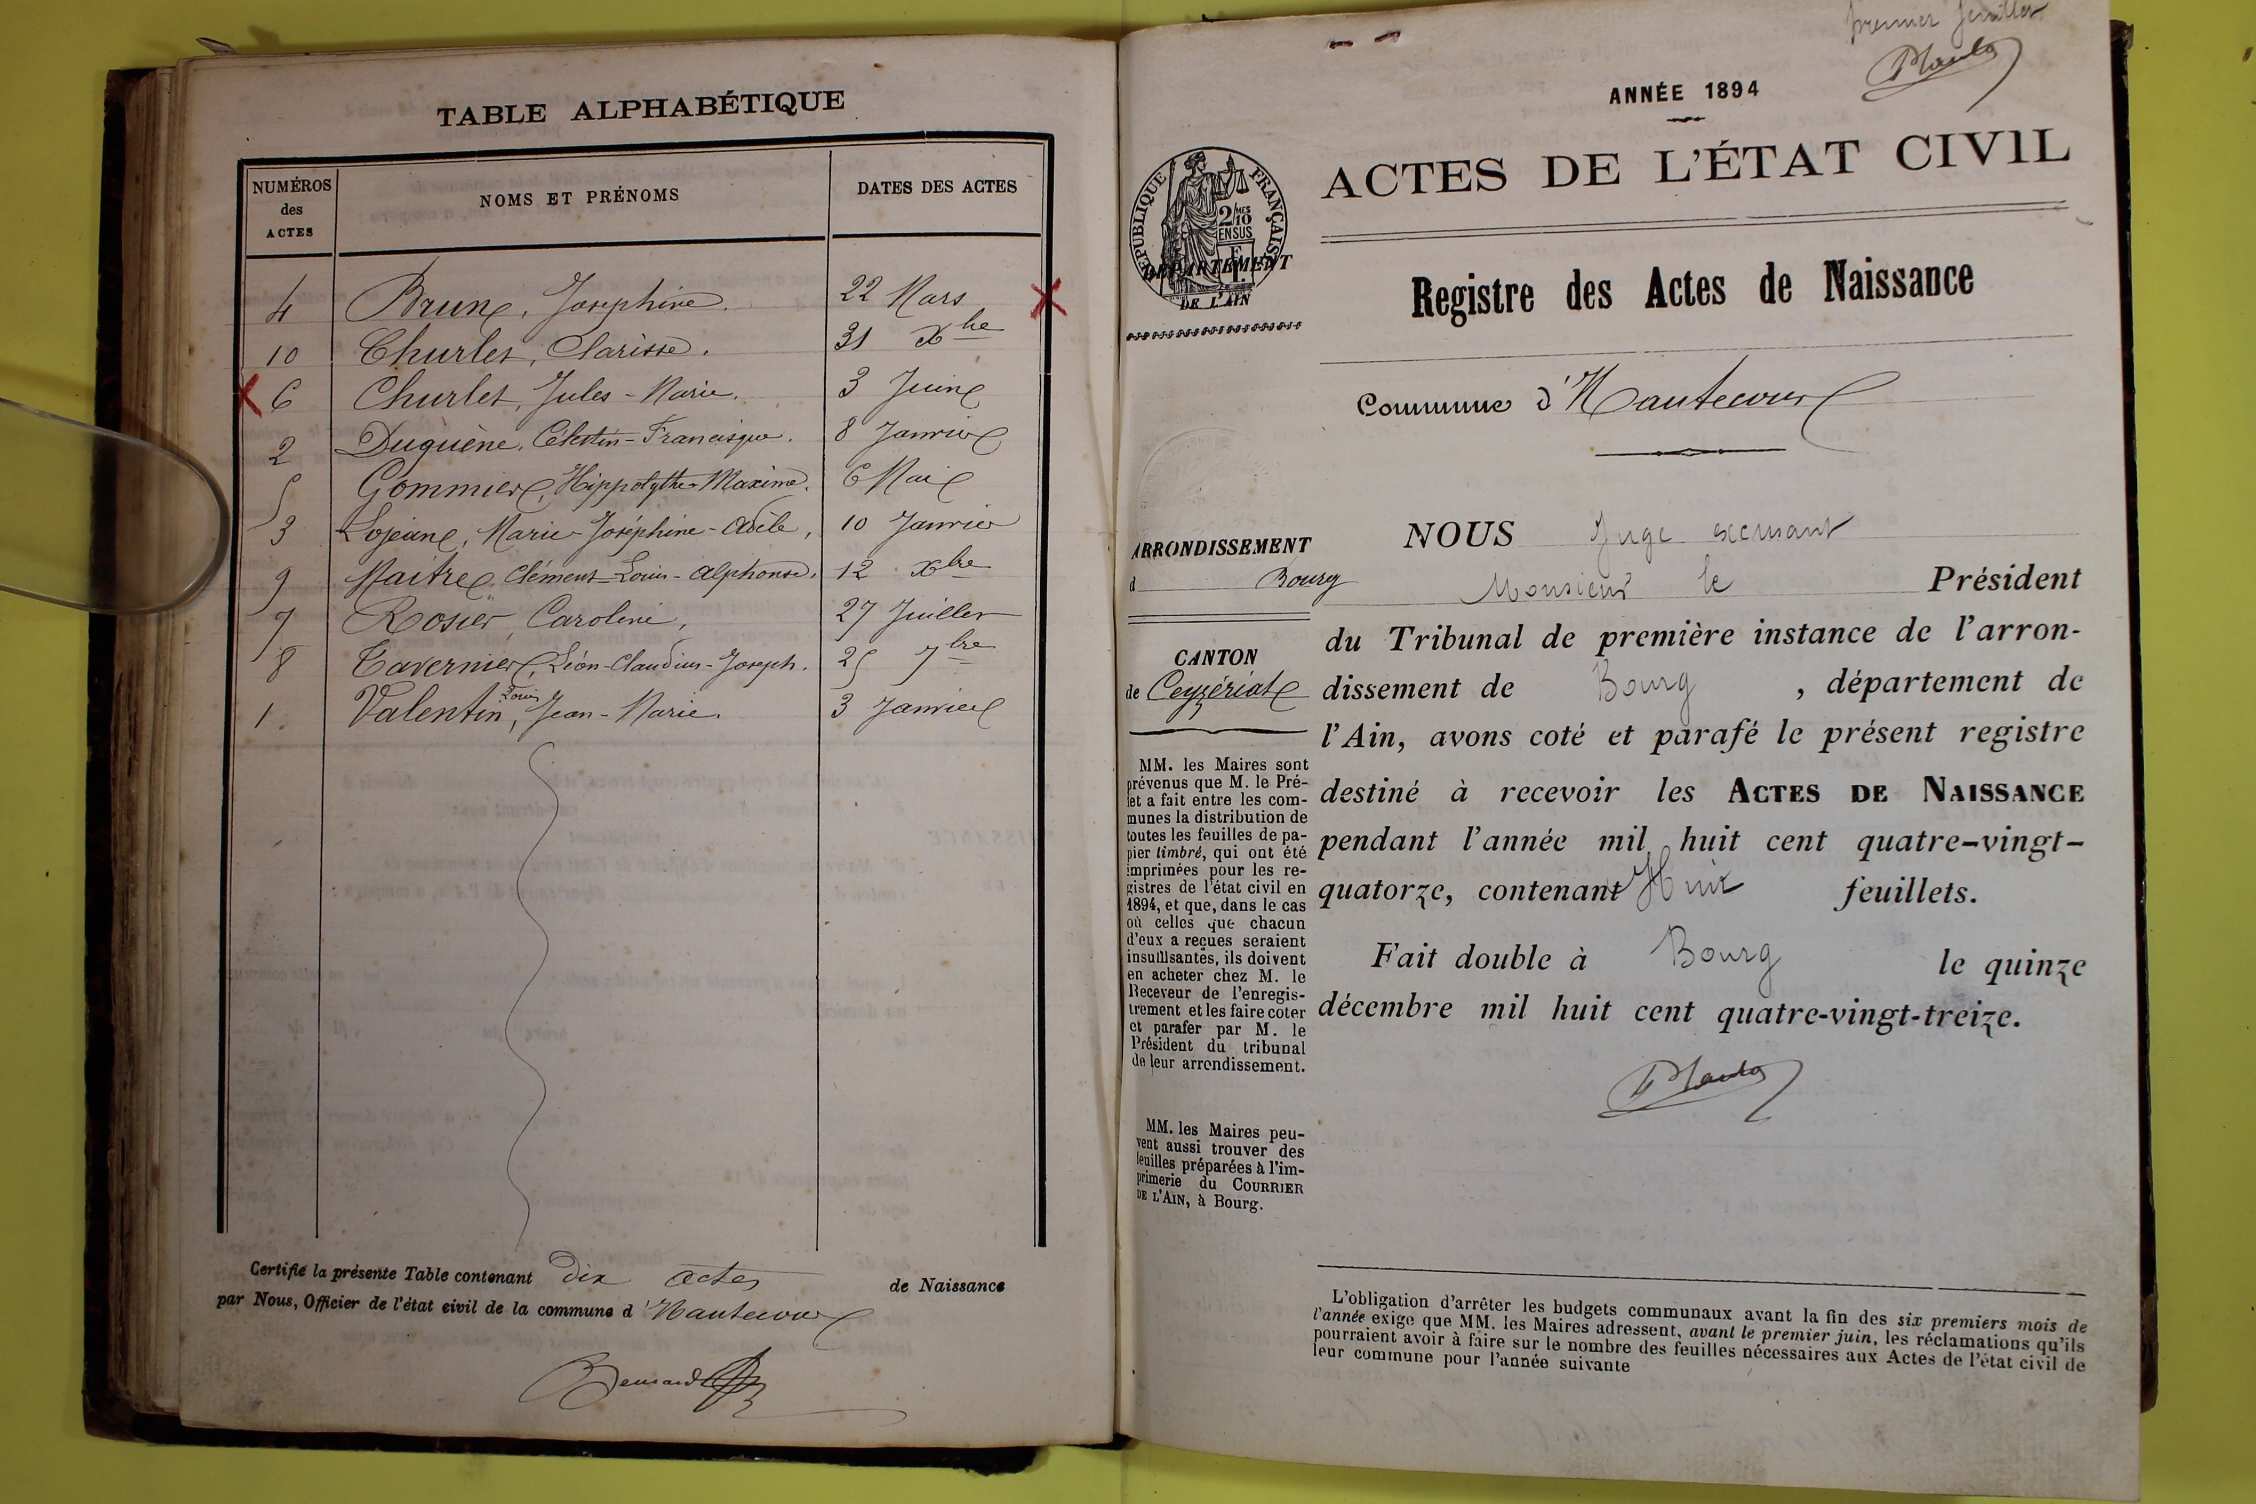 TABLE ALPHABÉTIQUE
NUMÉROS
des
ACTES
NOMS ET PRÉNOMS
DATES DES ACTES
4 Brun, Joséphine. 22 Mars
10 Churlet, Clarisse. 31 Xbre
6 Churlet, Jules-Marie. 3 Juin
2 Duguène, Célestin-Francisque. 8 Janvier
5 Gommier, Hippolythe-Maxime. 6 Mai
3 Lojean, Marie-Joséphine-Adèle, 10 Janvier
9 Maitre, Clément-Louis-Alphonse. 12 Xbre
7 Rosier, Caroline, 27 Juillet
8 Tavernier, Léon-Claudius-Joseph. 25 7bre
1. Valentin, Louis Jean-Marie. 3 Janvier
Certifié la présente Table contenant dix actes de Naissance
par Nous, Officier de l'état civil de la commune d'Hautecour
Bernard
premier feuillet
ANNÉE 1894
ACTES DE L'ÉTAT CIVIL
RÉPUBLIQUE FRANÇAISE
2/10 MES
EN SUS
DÉPARTEMENT
DE L'AIN
Registre des Actes de Naissance
Commune d'Hautecour
ARRONDISSEMENT
d Bourg
CANTON
de Ceyzériat
MM. les Maires sont
prévenus que M. le Pré-
fet a fait entre les com-
munes la distribution de
toutes les feuilles de pa-
pier timbré, qui ont été
imprimées pour les re-
gistres de l'état civil en
1894, et que, dans le cas
où celles que chacun
d'eux a reçues seraient
insuffisantes, ils doivent
en acheter chez M. le
Receveur de l'enregis-
trement et les faire coter
et parafer par M. le
Président du tribunal
de leur arrondissement.
MM. les Maires peu-
vent aussi trouver des
feuilles préparées à l'im-
primerie du COURRIER
DE L'AIN, à Bourg.
NOUS Juge exerçant
Monsieur le Président
du Tribunal de première instance de l'arron-
dissement de Bourg, département de
l'Ain, avons coté et parafé le présent registre
destiné à recevoir les ACTES DE NAISSANCE
pendant l'année mil huit cent quatre-vingt-
quatorze, contenant Huit feuillets.
Fait double à Bourg le quinze
décembre mil huit cent quatre-vingt-treize.
L'obligation d'arrêter les budgets communaux avant la fin des six premiers mois de
l'année exige que MM. les Maires adressent, avant le premier juin, les réclamations qu'ils
pourraient avoir à faire sur le nombre des feuilles nécessaires aux Actes de l'état civil de
leur commune pour l'année suivante